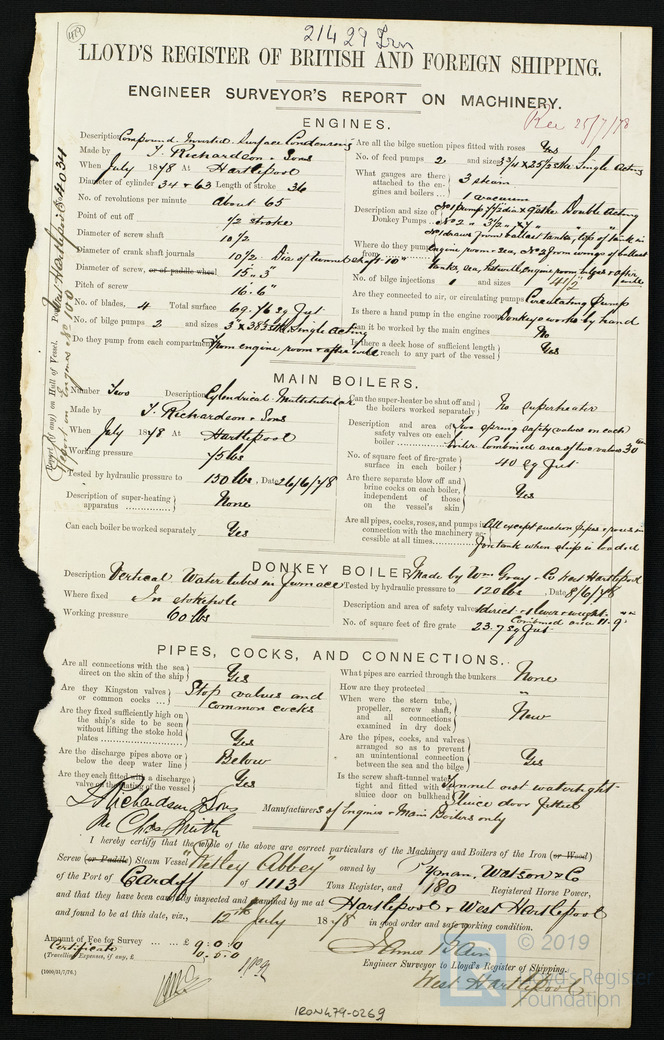 479
21429 Irn
LLOYD'S REGISTER OF BRITISH AND FOREIGN SHIPPING.
ENGINEER SURVEYOR'S REPORT ON MACHINERY.
Rec 25/7/78
ENGINES.
Description Compound Inverted Surface Condensing
Made by T. Richardson & Sons
When July 1878 At Hartlepool
Diameter of cylinder 34 & 63 Length of stroke 36
No. of revolutions per minute about 65
Point of cut off 1/2 stroke
Diameter of screw shaft 10 1/2
Diameter of crank shaft journals 10 1/2 Dia of tunnel shaft 10"
Diameter of screw, or of paddle wheel 15" 3"
Pitch of screw 16" 6"
No. of blades, 4 Total surface 69.76 sq feet
No. of bilge pumps 2 and sizes Single Acting
Do they pump from each compartment From engine room & after well
Are all the bilge suction pipes fitted with roses Yes
No. of feed pumps 2 and sizes Single Acting
What gauges are there attached to the engines and boilers 3 steam
1 vacuum
Description and size of Donkey Pumps No 1 pump Double Acting
No 2
Where do they pump from No 1 draws from ballast tanks, top of tank in
engine room & sea, No 2 from wings of ballast
tanks, sea, hotwell, engine room bilges & after well
No. of bilge injections 1 and sizes 4 1/2"
Are they connected to air, or circulating pumps Circulating Pump
Is there a hand pump in the engine room Donkey works by hand
Can it be worked by the main engines No
Is there a deck hose of sufficient length to reach to any part of the vessel Yes
MAIN BOILERS.
Number Two Description Cylindrical Multitubular
Made by T. Richardson & Sons
When July 1878 At Hartlepool
Working pressure 75 lbs
Tested by hydraulic pressure to 150 lbs, Date 26/6/78
Description of super-heating apparatus None
Can each boiler be worked separately Yes
Can the super-heater be shut off and the boilers worked separately No superheater
Description and area of safety valves on each boiler Two spring safety valves on each
boiler Combined area of two valves 30
No. of square feet of fire-grate surface in each boiler 40 sq feet
Are there separate blow off and brine cocks on each boiler, independent of those on the vessel's skin Yes
Are all pipes, cocks, roses, and pumps in connection with the machinery accessible at all times All except suction pipes & roses in
for tank when ship is loaded
DONKEY BOILER Made by Wm Gray & Co West Hartlepool
Description Vertical Water tubes in furnace
Where fixed In stokehole
Working pressure 60 lbs
Tested by hydraulic pressure to 120 lbs, Date 8/6/78
Description and area of safety valves 1 direct & lever & weight
Combined area 11.9"
No. of square feet of fire grate 23.7 sq feet
PIPES, COCKS, AND CONNECTIONS.
Are all connections with the sea direct on the skin of the ship Yes
Are they Kingston valves or common cocks Stop valves and
common cocks
Are they fixed sufficiently high on the ship's side to be seen without lifting the stoke hold plates Yes
Are the discharge pipes above or below the deep water line Below
Are they each fitted with a discharge valve on the plating of the vessel Yes
What pipes are carried through the bunkers None
How are they protected "
When were the stern tube, propeller, screw shaft, and all connections examined in dry dock New
Are the pipes, cocks, and valves arranged so as to prevent an unintentional connection between the sea and the bilge Yes
Is the screw shaft-tunnel water tight and fitted with a sluice door on bulkhead Tunnel not watertight
Sluice door fitted
T. Richardson & Sons
Manufacturers of Engines & Main Boilers only
Chas Smith
I hereby certify that the whole of the above are correct particulars of the Machinery and Boilers of the Iron (or Wood)
Screw (or Paddle) Steam Vessel "Netley Abbey" owned by Pyman, Watson & Co
of the Port of Cardiff of 1113 Tons Register, and 180 Registered Horse Power,
and that they have been carefully inspected and examined by me at Hartlepool & West Hartlepool
and found to be at this date, viz., 12th July 1878 in good order and safe working condition.
Amount of Fee for Survey ... ... £ 9:0:0
Certificate
(Travelling Expenses, if any, £ 0.5.0
James Bain
Engineer Surveyor to Lloyd's Register of Shipping.
West Hartlepool
(1000/31/7/76.)
IRON479-0269
© 2019
Lloyd's Register
Foundation